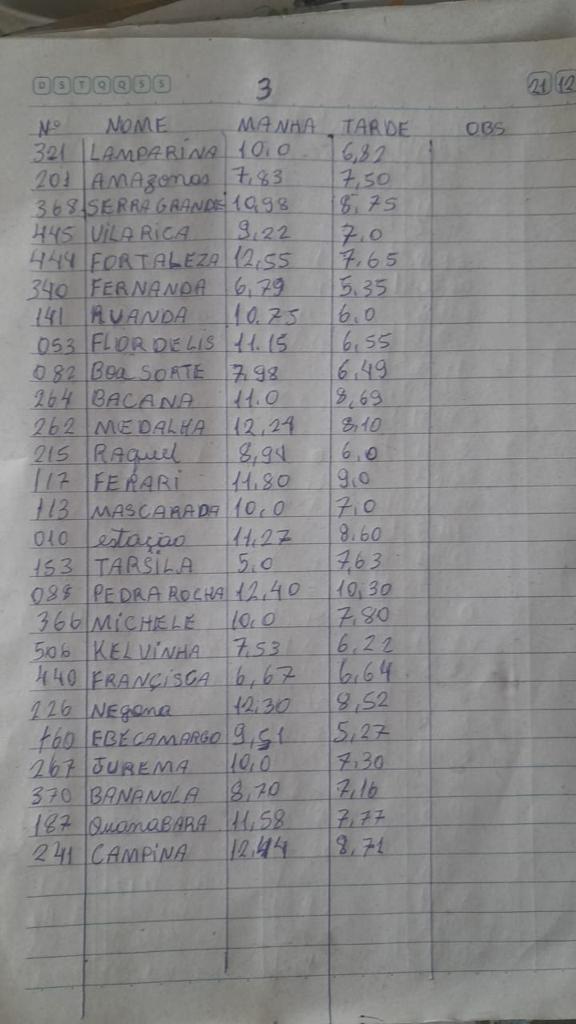 D S T Q Q S S 3 21 12
Nº NOME MANHA TARDE OBS
321 LAMPARINA 10,0 6,82
201 AMAzonas 7,83 7,50
368 SERRA GRANDE 10,98 8,75
445 VILA RICA 9,22 7,0
444 FORTALEZA 12,55 7,65
340 FERNANDA 6,79 5,35
141 RUANDA 10,75 6,0
053 FLOR DE LIS 11.15 6,55
082 Boa SORTE 7,98 6,49
264 BACANA 11.0 8,69
262 MEDALHA 12,24 8,10
215 Raquel 8,94 6,0
117 FERARI 11,80 9,0
113 MASCARADA 10,0 7,0
010 estação 11,27 8.60
153 TARSILA 5,0 7,63
088 PEDRA ROCHA 12,40 10,30
366 MICHELE 10,0 7,80
506 KELVINHA 7,53 6,22
440 FRANÇISCA 6,67 6,64
226 Negona 12,30 8,52
160 EBECAMARGO 9,51 5,27
267 JUREMA 10,0 7,30
370 BANANOLA 8,70 7,16
187 QuanaBARA 11,58 7,77
241 CAMPINA 12,44 8,71